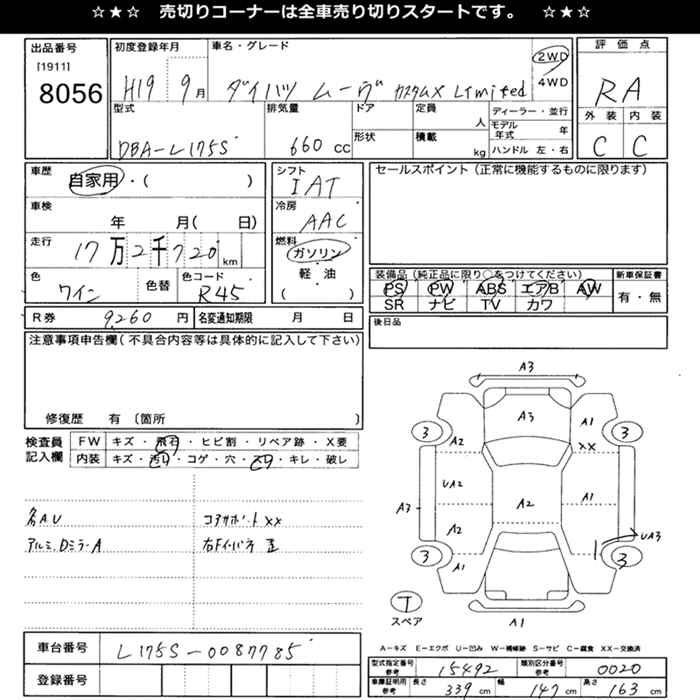 ☆★☆ 売切りコーナーは全車売り切りスタートです。 ☆★☆
出品番号
[1911]
8056
初度登録年月
H19 9月
車名・グレード
ダイハツ ムーヴ カスタムX Limited
2WD
4WD
評価点
RA
外装 内装
C C
型式
DBA-L175S
排気量
660 cc
ドア
形状
定員
人
積載
kg
ディーラー・並行
モデル年式 年
ハンドル 左・右
車歴
自家用・( )
車検
年 月( 日)
走行
17万2千720km
色
ワイン
色替
色コード
R45
シフト
IAT
冷房
AAC
燃料
ガソリン
軽・油
( )
セールスポイント(正常に機能するものに限ります)
装備品(純正品に限り○をつけてください)
PS PW ABS エアB AW
SR ナビ TV カワ
新車保証書
有・無
R券 9,260 円
名変通知期限 月 日
後日品
注意事項申告欄(不具合内容等は具体的に記入して下さい)
修復歴 有 (箇所
検査員記入欄
FW キズ・飛石・ヒビ割・リペア跡・X要
内装 キズ・汚れ・コゲ・穴・スレ・キレ・破レ
各AU
アルミ、DミラーA
コアサポートXX
右Fインパネ歪
A3
A3
A1
XX
3
3
A2
UA2
A2
A1
A3
A2
A1
UA3
3
3
A1
T
スペア
A-キズ E-エクボ U-凹み W-補修跡 S-サビ C-腐食 XX-交換済
車台番号 L175S-0087785
登録番号
型式指定番号 参考 15492
類別区分番号 参考 0020
車庫証明用 参考 長さ 339 cm 幅 147 cm 高さ 163 cm